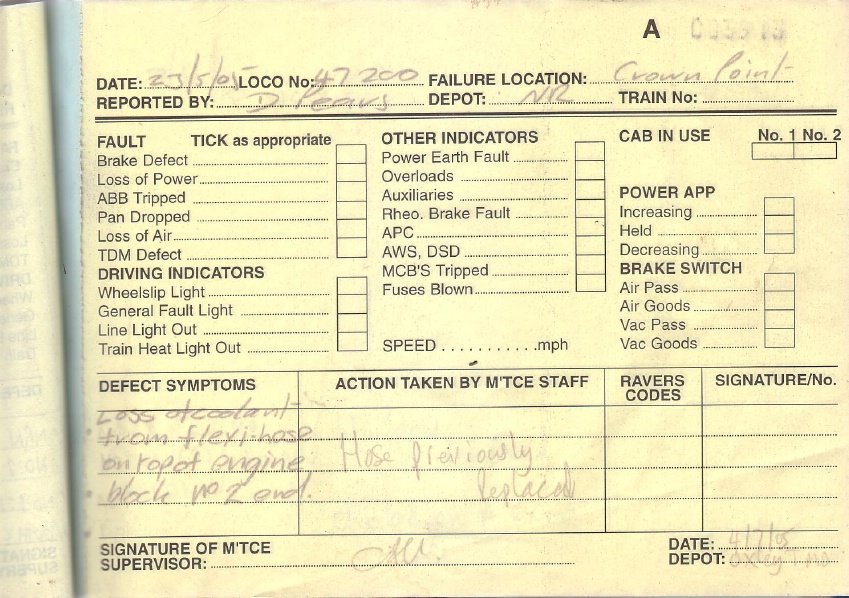 A
DATE: 23/5/05 LOCO No: 47 200 FAILURE LOCATION: Crown Point
REPORTED BY: D. Pears DEPOT: NR TRAIN No:
FAULT TICK as appropriate
Brake Defect
Loss of Power
ABB Tripped
Pan Dropped
Loss of Air
TDM Defect
DRIVING INDICATORS
Wheelslip Light
General Fault Light
Line Light Out
Train Heat Light Out
OTHER INDICATORS
Power Earth Fault
Overloads
Auxiliaries
Rheo. Brake Fault
APC
AWS, DSD
MCB'S Tripped
Fuses Blown
SPEED . . . . . . . . . . mph
CAB IN USE No. 1 No. 2
POWER APP
Increasing
Held
Decreasing
BRAKE SWITCH
Air Pass
Air Goods
Vac Pass
Vac Goods
DEFECT SYMPTOMS
Loss of coolant
from flexi-hose
on top of engine
block no 2 end.
ACTION TAKEN BY M'TCE STAFF
Hose previously
replaced
RAVERS
CODES
SIGNATURE/No.
SIGNATURE OF M'TCE
SUPERVISOR:
DATE: 4/7/05
DEPOT: Oxley